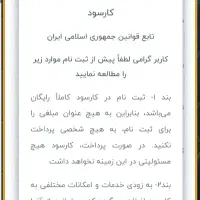 کارسود
تابع قوانین جمهوری اسلامی ایران
کاربر گرامی لطفاً پیش از ثبت نام موارد زیر
را مطالعه نمایید
بند ۱- ثبت نام در کارسود کاملاً رایگان
می‌باشد، بنابراین به هیچ عنوان مبلغی را
برای ثبت نام، به هیچ شخصی پرداخت
نکنید. در صورت پرداخت، کارسود هیچ
مسئولیتی در این زمینه نخواهد داشت
بند۲- به زودی خدمات و امکانات مختلفی به